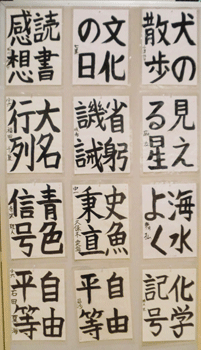 犬の
散歩
文化
の日
読書
感想
見え
る星
省躬
譏誡
大名
行列
海水
よく
史魚
秉直
青色
信号
化学
記号
自由
平等
自由
平等